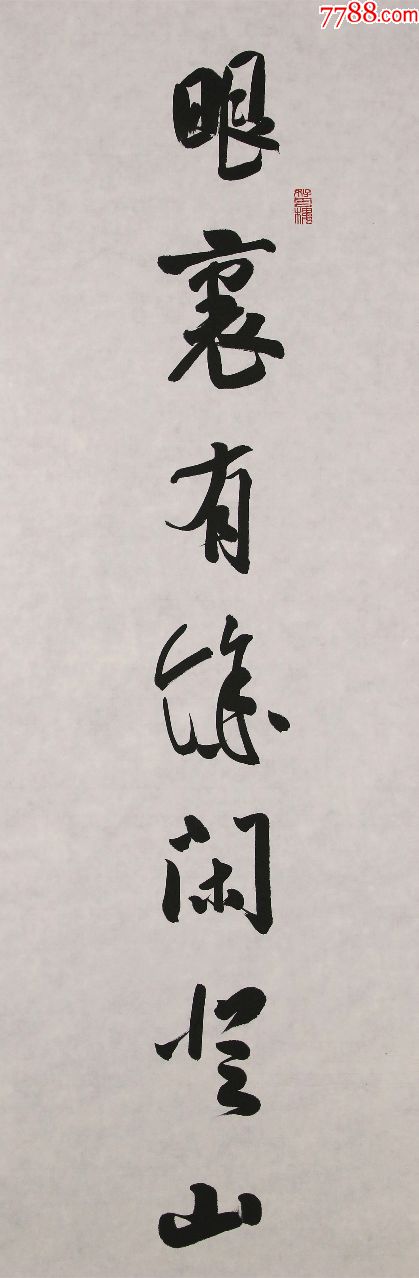 7788.com
眼裏有餘閑登山